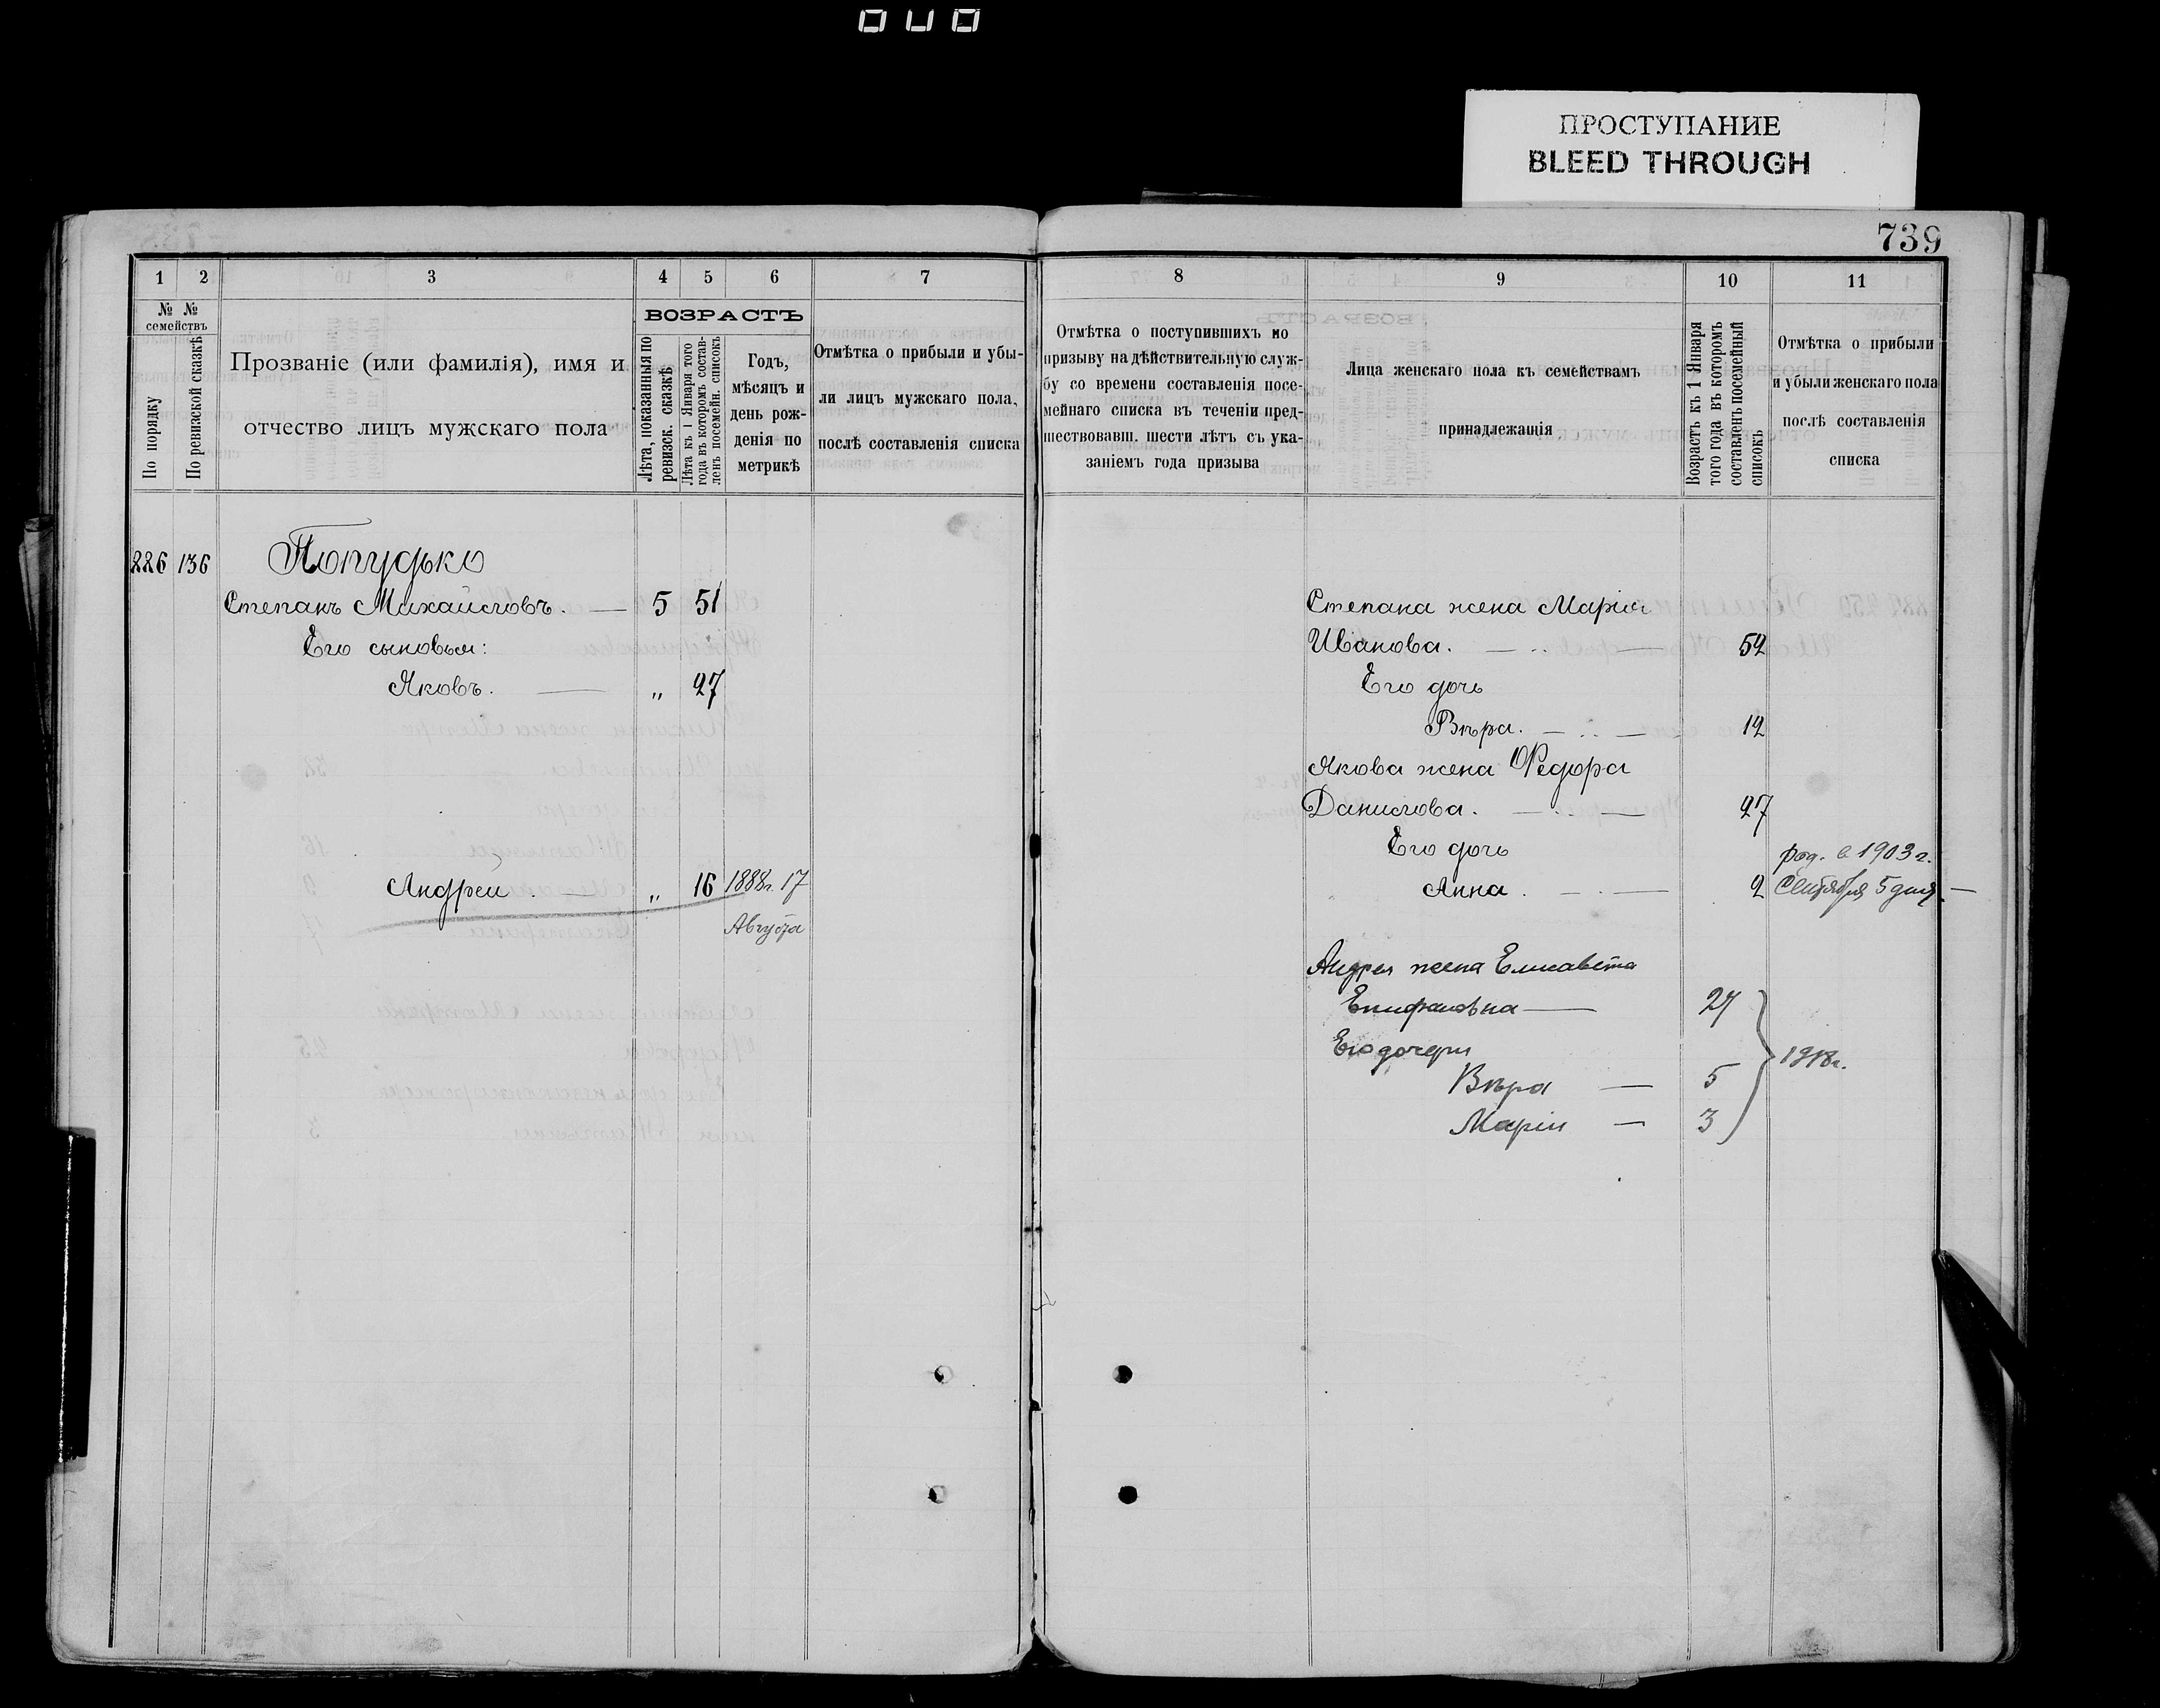 ПРОСТУПАНИЕ
BLEED THROUGH
739
1 2 3 4 5 6 7
№ № семействъ
По порядку
По ревизской сказкѣ
Прозваніе (или фамилія), имя и
отчество лицъ мужскаго пола
ВОЗРАСТЪ
Лѣта, показанныя по
ревизск. сказкѣ
Лѣта къ 1 Января того
года въ которомъ состав-
ленъ посемейн. списокъ
Годъ,
мѣсяцъ и
день рож-
денія по
метрикѣ
Отмѣтка о прибыли и убы-
ли лицъ мужскаго пола,
послѣ составленія списка
226 136 Попудько
Степанъ Михайловъ. — 5 51
Его сыновья:
Яковъ. — „ 27
Андрей. — „ 16 1888г. 17
Августа
8 9 10 11
Отмѣтка о поступившихъ по
призыву на дѣйствительную служ-
бу со времени составленія посе-
мейнаго списка въ теченіи пред-
шествовавш. шести лѣтъ съ ука-
заніемъ года призыва
Лица женскаго пола къ семействамъ
принадлежащія
Возрастъ къ 1 Января
того года въ которомъ
составленъ посемейный
списокъ
Отмѣтка о прибыли
и убыли женскаго пола
послѣ составленія
списка
Степана жена Марія
Иванова. — 52
Его дочь
Вѣра. — 12
Якова жена Ѳедора
Данилова. — 27
Его дочь
род. в 1903 г.
Анна. — 2 Сентября 5 дня —
Андрея жена Елисавета
Епифановна — 27
Его дочери
1918г.
Вѣра — 5
Марія — 3